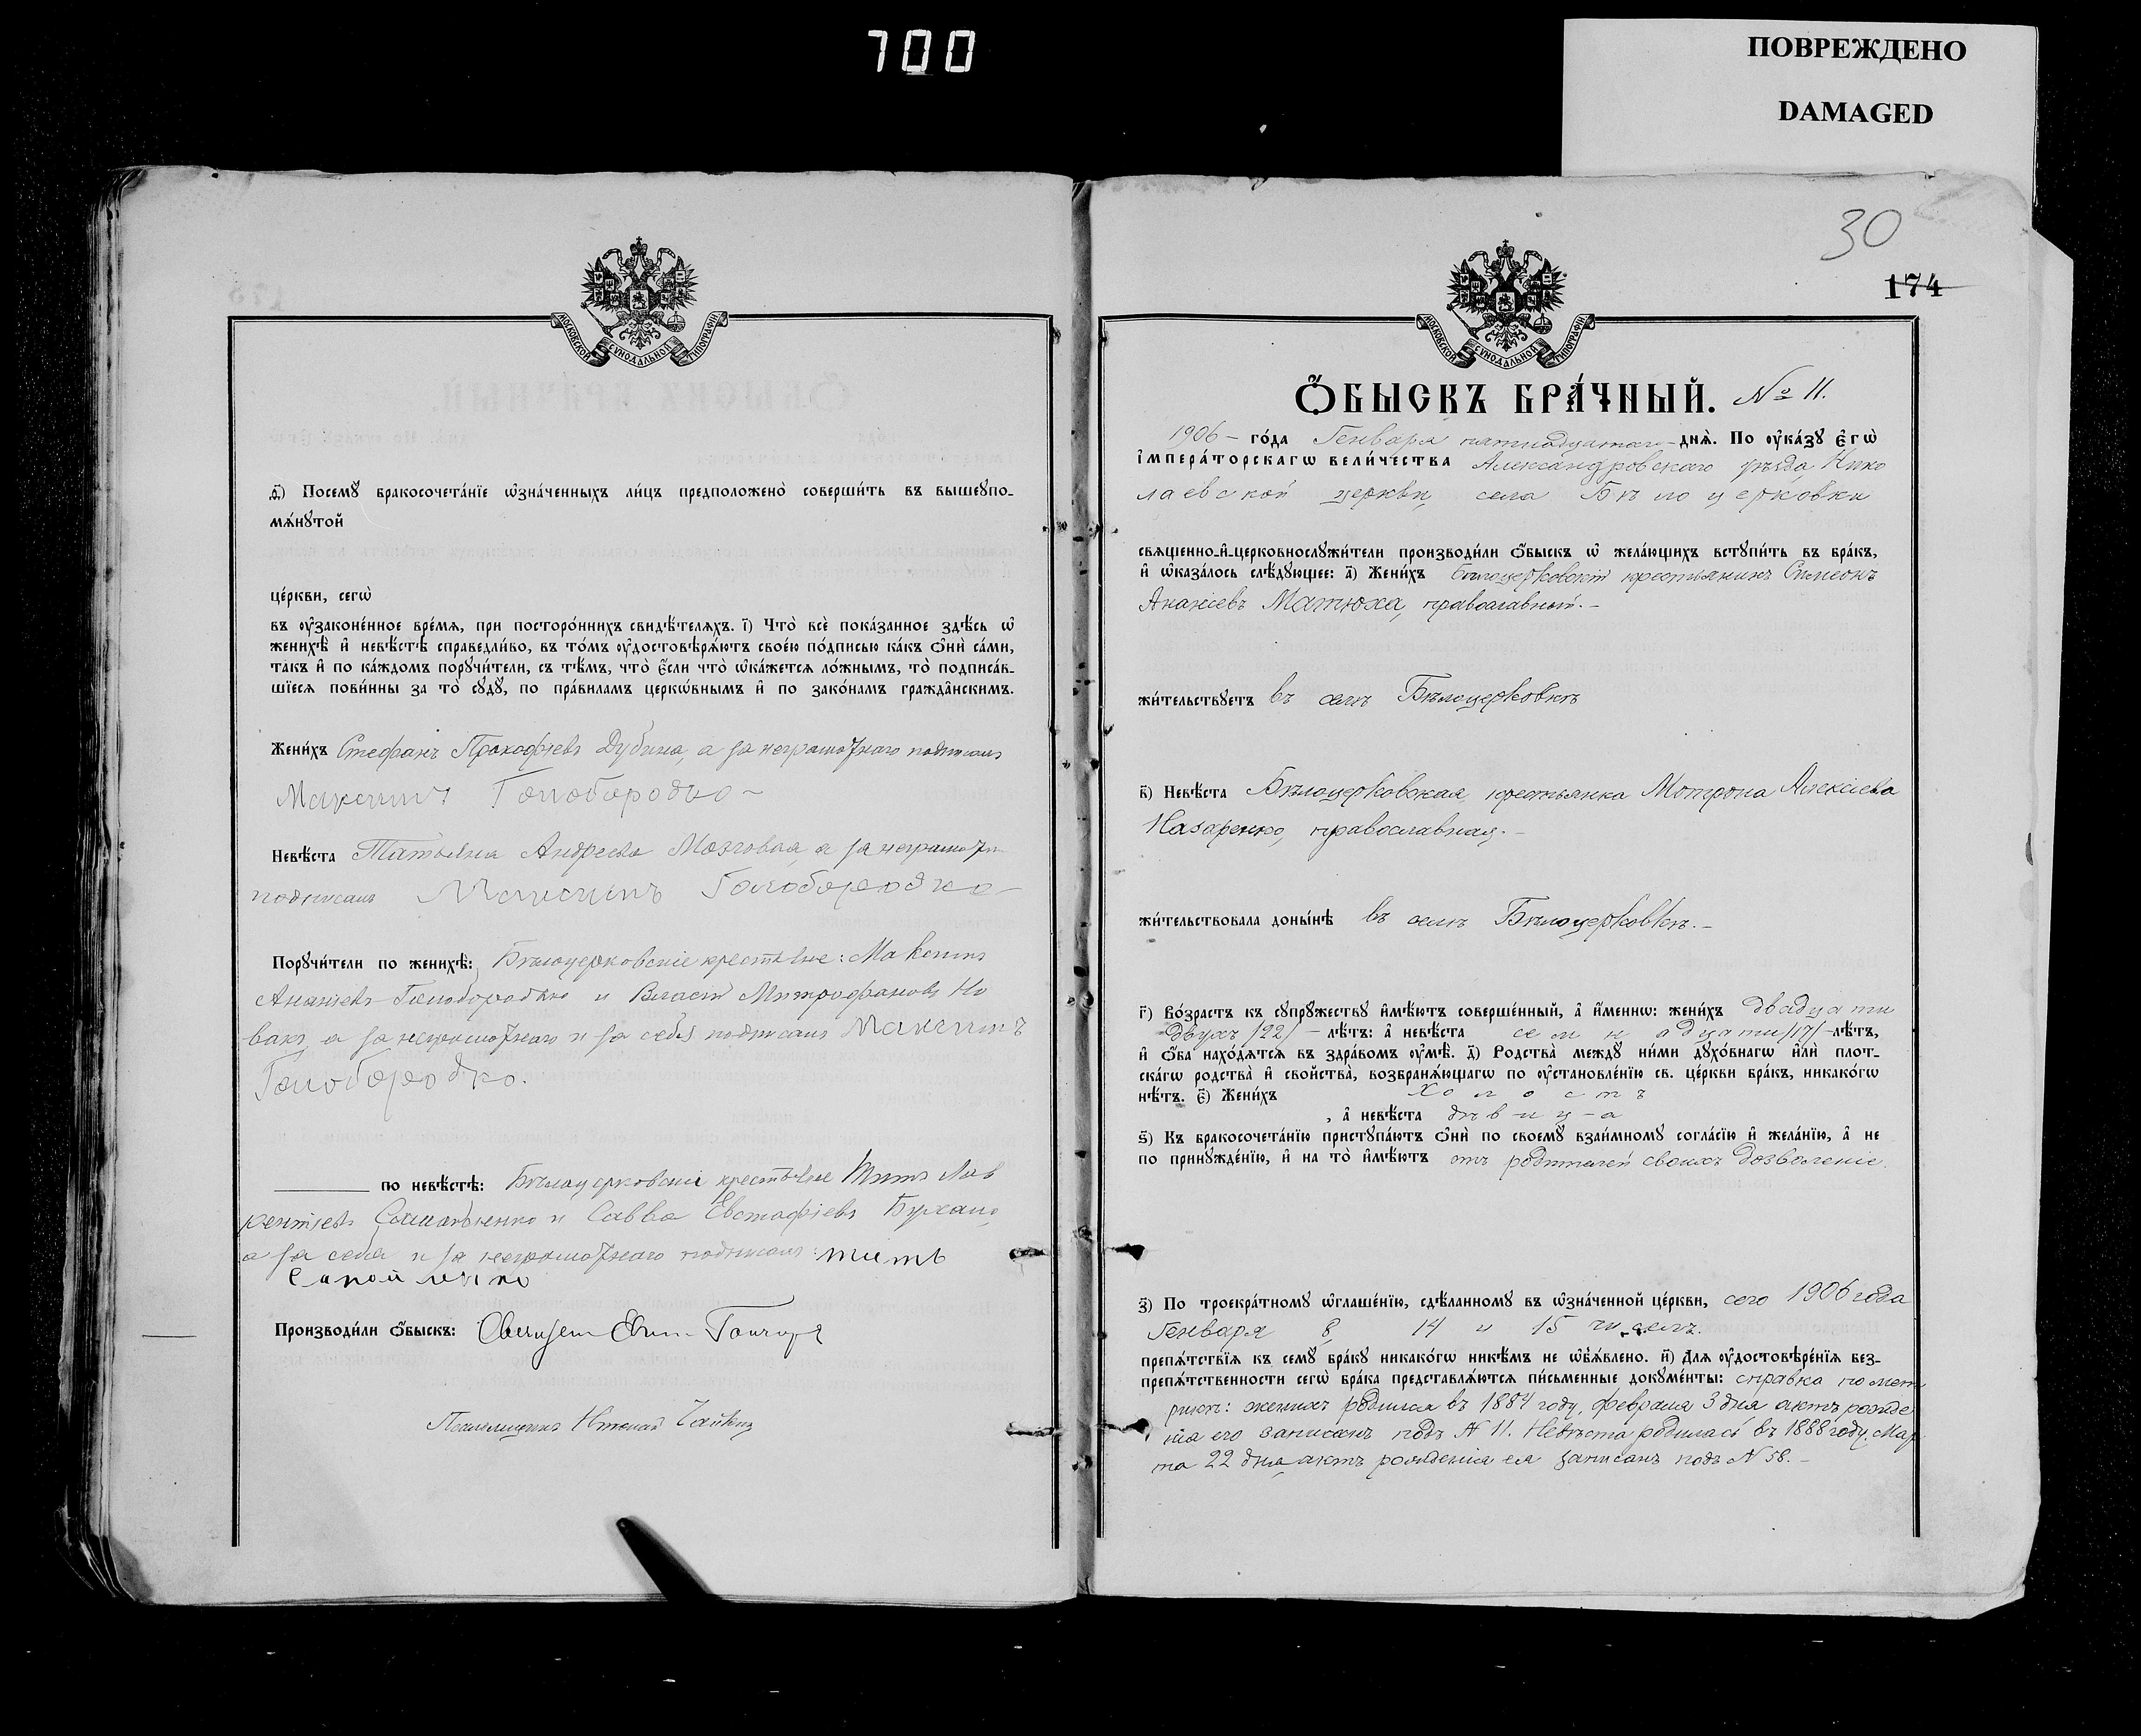 700
ПОВРЕЖДЕНО
DAMAGED
МОСКОВСКОЙ СѴНОДАЛЬНОЙ ТИПОГРАФІИ
ѳ҃) Посемꙋ̀ бракосочета́нїе ѡ҆зна́ченныхъ ли́цъ предположено̀ соверши́ть въ вышеꙋпо-
мѧ́нꙋтой
це́ркви, сегѡ̀
въ ᲂу҆зако́ненное вре́мѧ, при посторо́ннихъ свидѣ́телѧхъ. і҃) Что̀ всѐ пока́занное здѣ́сь ѡ҆
женихѣ̀ и҆ невѣ́стѣ справедли́во, въ то́мъ ᲂу҆достовѣрѧ́ютъ свое́ю по́дписью ка́къ ѻ҆нѝ са́ми,
та́къ и҆ по ка́ждомъ порꙋчи́тели, съ тѣ́мъ, что̀ є҆́сли что̀ ѡ҆ка́жетсѧ ло́жнымъ, то̀ подписа́в-
шїесѧ пови́нны за то̀ сꙋдꙋ̀, по пра́виламъ церко́внымъ и҆ по зако́намъ гражда̑нскимъ.
Жени́хъ Стефанъ Прокофіевъ Дубина, а за неграмотнаго подписалъ
Максимъ Голобородко
Невѣ́ста Татьяна Андреева Мозговая, а за неграмотн.
подписалъ Максимъ Голобородко
Порꙋчи́тели по женихѣ̀: Бѣлоцерковскіе крестьяне: Максимъ
Ананіевъ Голобородко и Власій Митрофановъ Но
вакъ, а за неграмотнаго и за себя подписалъ Максимъ
Голобородко.
по невѣ́стѣ: Бѣлоцерковскіе крестьяне Титъ Лав
рентіевъ и Савва Евстафіевъ
а за себя и за неграмотнаго подписалъ: Титъ
Производи́ли ѻ҆́быскъ: Священ.
Псаломщикъ
30
174
МОСКОВСКОЙ СѴНОДАЛЬНОЙ ТИПОГРАФІИ
Ѻ҆́БЫСКЪ БРА́ЧНЫЙ. № 11.
1906 – го́да Генваря пятнадцатаго – днѧ̀. По ᲂу҆ка́зꙋ є҆гѡ̀
і҆мпера́торскагѡ вели́чества Александровскаго уѣзда, Нико
лаевской церкви, села Бѣлоцерковки
свѧще́нно-и҆-церковнослꙋжи́тели производи́ли ѻ҆́быскъ ѡ҆ жела́ющихъ встꙋпи́ть въ бра́къ,
и҆ ѡ҆каза́лось слѣ́дꙋющее: а҃) Жени́хъ Бѣлоцерковскій крестьянинъ Симеонъ
Ананіевъ Матюха, православный. –
жи́тельствꙋетъ въ селѣ Бѣлоцерковкѣ
в҃) Невѣ́ста Бѣлоцерковская крестьянка Мотрона Алексіева
Назаренко, православная. –
жи́тельствовала доны́нѣ въ селѣ Бѣлоцерковкѣ. –
г҃) Во́зрастъ къ сꙋпрꙋ́жествꙋ и҆мѣ́ютъ соверше́нный, а҆ и҆́менно: жени́хъ двадцати
двухъ /22/ – лѣ́тъ: а҆ невѣ́ста семнадцати /17/ – лѣ́тъ,
и҆ ѻ҆́ба нахо́дѧтсѧ въ здра́вомъ ᲂу҆мѣ̀. д҃) Родства̀ междꙋ ни́ми дꙋхо́внагѡ и҆лѝ плот-
ска́гѡ родства̀ и҆ свойства̀, возбранѧ́ющагѡ по ᲂу҆становле́нїю св. це́ркви бра́къ, никако́гѡ
нѣ́тъ. є҃) Жени́хъ холостъ
, а҆ невѣ́ста дѣвица
ѕ҃) Къ бракосочета́нїю пристꙋпа́ютъ ѻ҆нѝ по своемꙋ̀ взаи́мномꙋ согла́сїю и҆ жела́нїю, а҆ не
по принꙋжде́нїю, и҆ на то̀ и҆мѣ́ютъ отъ родителей своихъ дозволеніе.
з҃) По троекра́тномꙋ ѡ҆глаше́нїю, сдѣ́ланномꙋ въ ѡ҆зна́ченной це́ркви, сего 1906 года
Генваря 8, 14 и 15 чиселъ.
препѧ́тствїѧ къ семꙋ̀ бра́кꙋ никако́гѡ никѣ́мъ не ѡ҆б̾ѧ́влено. и҃) Длѧ ᲂу҆достовѣре́нїѧ без-
препѧ́тственности сегѡ̀ бра́ка представлѧ́ютсѧ пи́сьменные докꙋме́нты: справка по мет
рикѣ: женихъ родился въ 1884 году, февраля 3 дня актъ рожде
нія его записанъ подъ № 11. Невѣста родилась въ 1888 году, Мар
та 22 дня, актъ рожденія ея записанъ подъ № 58. –